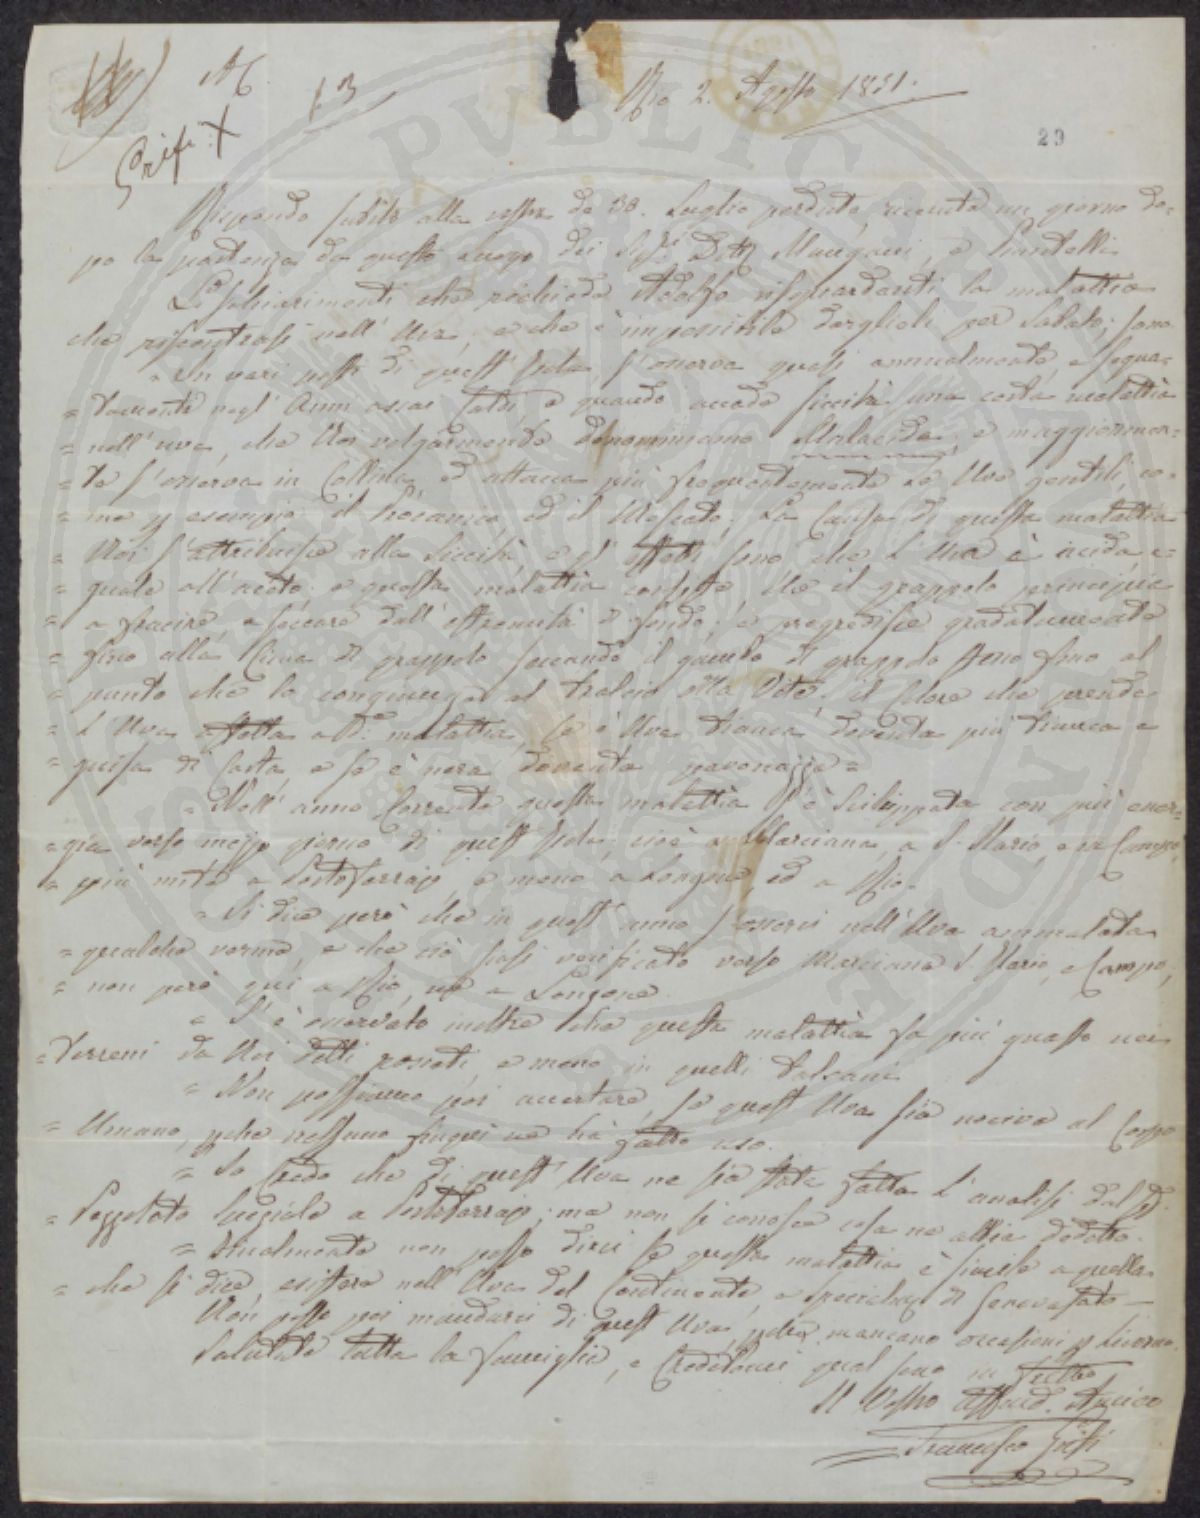 13
Grifi X
Rio 2. Agosto 1851.
29
Rispondo subito alla vostra de 30. Luglio perduto, ricevuta un giorno do-
po la partenza da questo luogo dei Sigri Dottri Mangani, e
Li schiarimenti che richiede Adolfo risguardanti la malattia
che riscontrasi nell' Uva, e che è impossibile darglieli per Sabato; sono
= In vari posti di quest' Isola s'osserva quasi annualmente, e segna-
= tamente negl' Anni assai caldi, e quando accade siccità una certa malattia
= nell' uva, che Noi volgarmente denominiamo e maggiormen-
= te s'osserva in Collina ed attacca più frequentemente le Uve gentili, co-
= me p esempio il ed il Moscato. La Causa di questa malattia
= Noi s'attribuisce alla Siccità e gl' effetti sono che L'Uva è acida e-
= guale all' aceto; e questa malattia consiste, che il grappolo principia
= a e seccare dall' estremità o fondo, e progredisce gradatamente
= fino alla Cima di grappolo seccando il gambo di grappolo fino al
= punto che lo congiunge al tralcio della Vite; il Colore che prende
= L'Uva affetta a da malattia, se è Uva bianca diventa più bianca a
= guisa di Carta, e se è nera diventa pavonazza =
= Nell' anno Corrente questa malattia s'è Sviluppata con più ener-
= gia verso mezzo giorno di quest' Isola, cioè a Marciana, a S. Ilario, e in Campo,
= più mite a Portoferrajo, e meno a Longone ed a Rio.
= Si dice però che in quest' anno s'osservi nell' Uva ammalata
= qualche verme, e che ciò siasi verificato verso Marciana S. Ilario, e Campo,
= non però qui a Rio, nè a Longone
= S'è osservato inoltre che questa malattia fa più guasto nei
= Terreni da Noi detti e meno in quelli
= Non possiamo poi accertare, se quest' Uva sia nociva al Corpo
= Umano, pche nessuno finqui ne hà fatto uso.
= Io Credo che di quest' Uva ne sia stata fatta L'analisi dal
= Speziale a Portoferrajo; ma non si conosce cosa ne abbia dedotto.
= Finalmente non posso dirci se questa malattia è simile a quella
= che si dice, esistere nell' Uva del Continente, e
Non posso poi mandarci di quest' Uva, pche mancano occasioni p Livorno.
Salutate tutta la famiglia, e Credetemi qual sono in fretta
Il Vostro Affmo Amico
Francesco Grifi